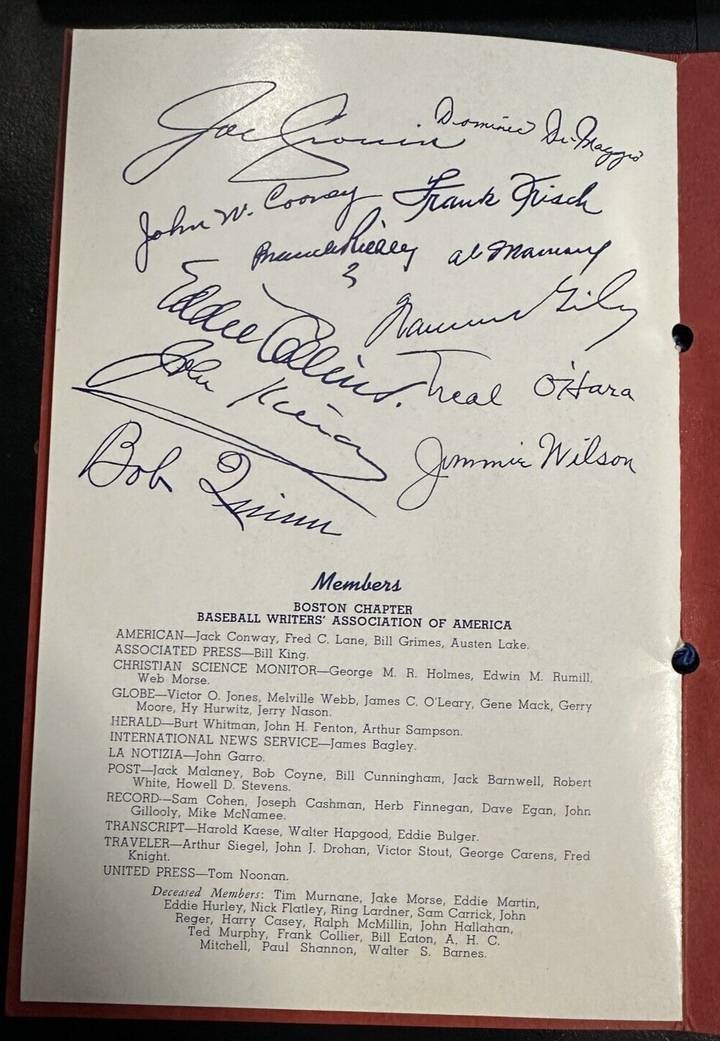 Joe Cronin
Dominic Di-Maggio
John W. Cooney
Frank Frisch
Branch Rickey
Al Mamaux
Eddie Collins.
John Kieran
Neal O'Hara
Bob Quinn
Jimmie Wilson
Members
BOSTON CHAPTER
BASEBALL WRITERS' ASSOCIATION OF AMERICA
AMERICAN—Jack Conway, Fred C. Lane, Bill Grimes, Austen Lake.
ASSOCIATED PRESS—Bill King.
CHRISTIAN SCIENCE MONITOR—George M. R. Holmes, Edwin M. Rumill,
Web Morse.
GLOBE—Victor O. Jones, Melville Webb, James C. O'Leary, Gene Mack, Gerry
Moore, Hy Hurwitz, Jerry Nason.
HERALD—Burt Whitman, John H. Fenton, Arthur Sampson.
INTERNATIONAL NEWS SERVICE—James Bagley.
LA NOTIZIA—John Garro.
POST—Jack Malaney, Bob Coyne, Bill Cunningham, Jack Barnwell, Robert
White, Howell D. Stevens.
RECORD—Sam Cohen, Joseph Cashman, Herb Finnegan, Dave Egan, John
Gillooly, Mike McNamee.
TRANSCRIPT—Harold Kaese, Walter Hapgood, Eddie Bulger.
TRAVELER—Arthur Siegel, John J. Drohan, Victor Stout, George Carens, Fred
Knight.
UNITED PRESS—Tom Noonan.
Deceased Members: Tim Murnane, Jake Morse, Eddie Martin,
Eddie Hurley, Nick Flatley, Ring Lardner, Sam Carrick, John
Reger, Harry Casey, Ralph McMillin, John Hallahan,
Ted Murphy, Frank Collier, Bill Eaton, A. H. C.
Mitchell, Paul Shannon, Walter S. Barnes.